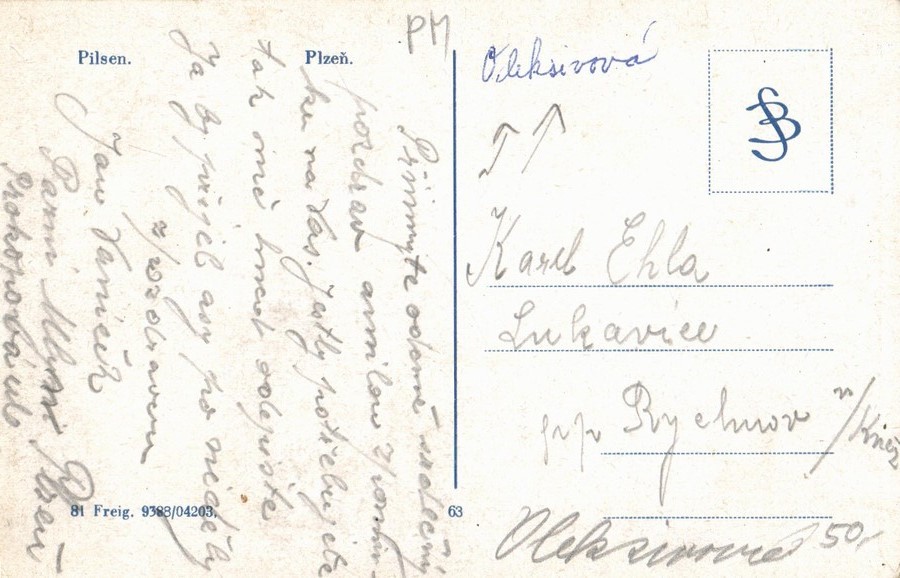 Pilsen.
Plzeň.
PM
Přijmyte odemě srdečný
pozdrav a milou vzpomín-
ku na Vás. Jestly potřebujete
tak mně hned odepište
Ja by přijel asy po neděly
z pozdravem
Jan Vaníček
Pani
81 Freig. 9388/04203.
63
Oleksivová
Karel Ehla
Lukavice
p.p. Rychnov n/Kněž
Oleksivová 50,-